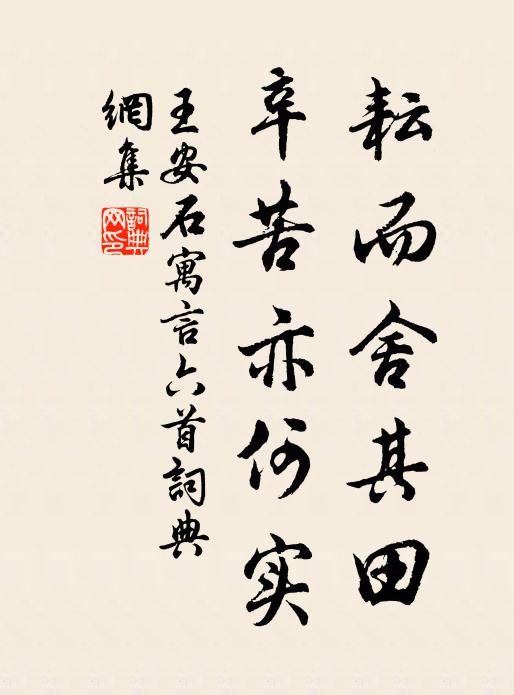 耘而舍其田
辛苦亦何实
王安石寓言六首詞典
網集
詞典网印